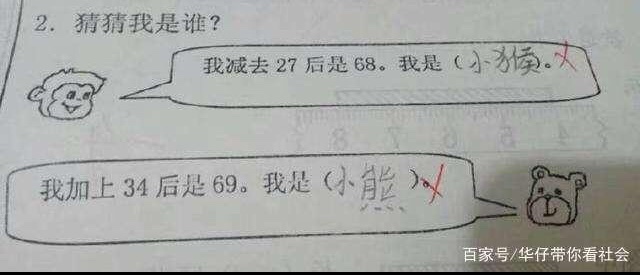 2. 猜猜我是谁?
我减去 27 后是 68。我是(小猴)。
我加上 34 后是 69。我是(小熊)。
百家号/华仔带你看社会